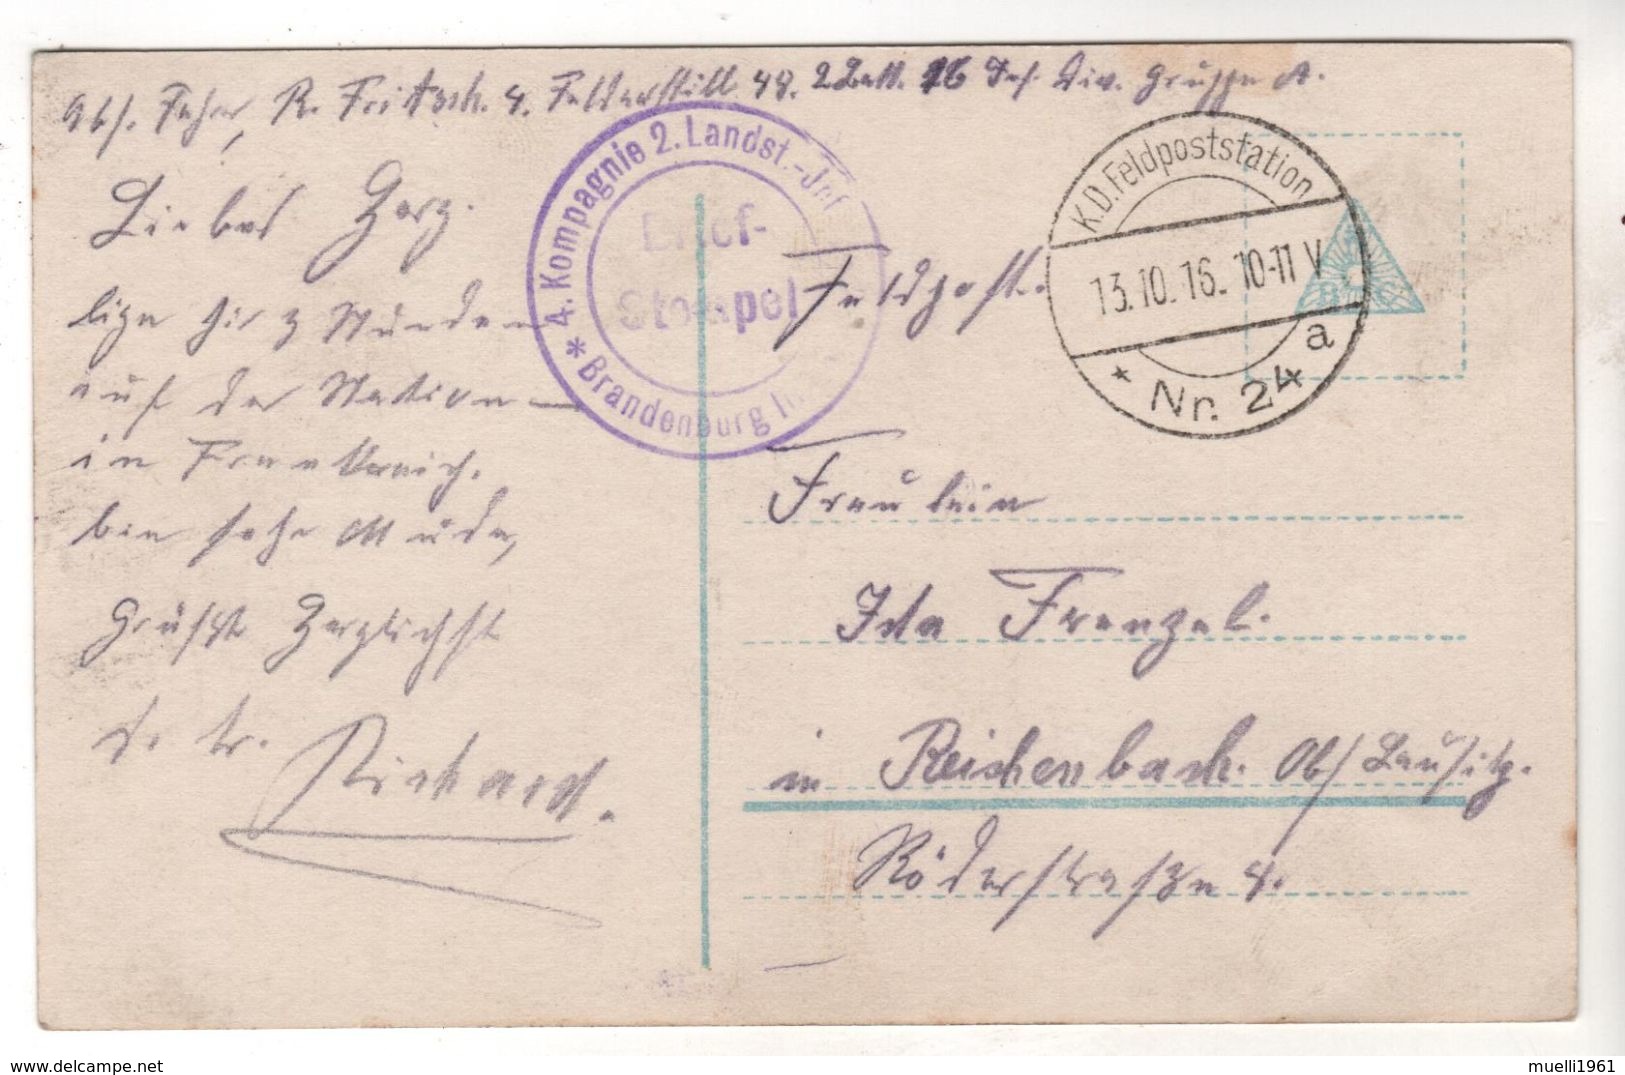 Abs. Fahrer, R. Fritzsch. 4. Feldartill 48. 2 Batt. 16 Inf. Div. Gruppe A.
4. Kompagnie 2. Landst.-Inf.
Brief-
Stempel
* Brandenburg
K.D. Feldpoststation
13.10.16. 10-11 V
* Nr. 24 a
Feldpost.
Liebes Herz.
liege hier 3 Stunden
auf der Station
in Frankreich.
bin sehr Müde,
Grüßt Herzlichst
d. tr. Richard.
Fräulein
Ida Frenzel.
in Reichenbach. Ob/Lausitz.
Röderstraße 4.
muelli1961